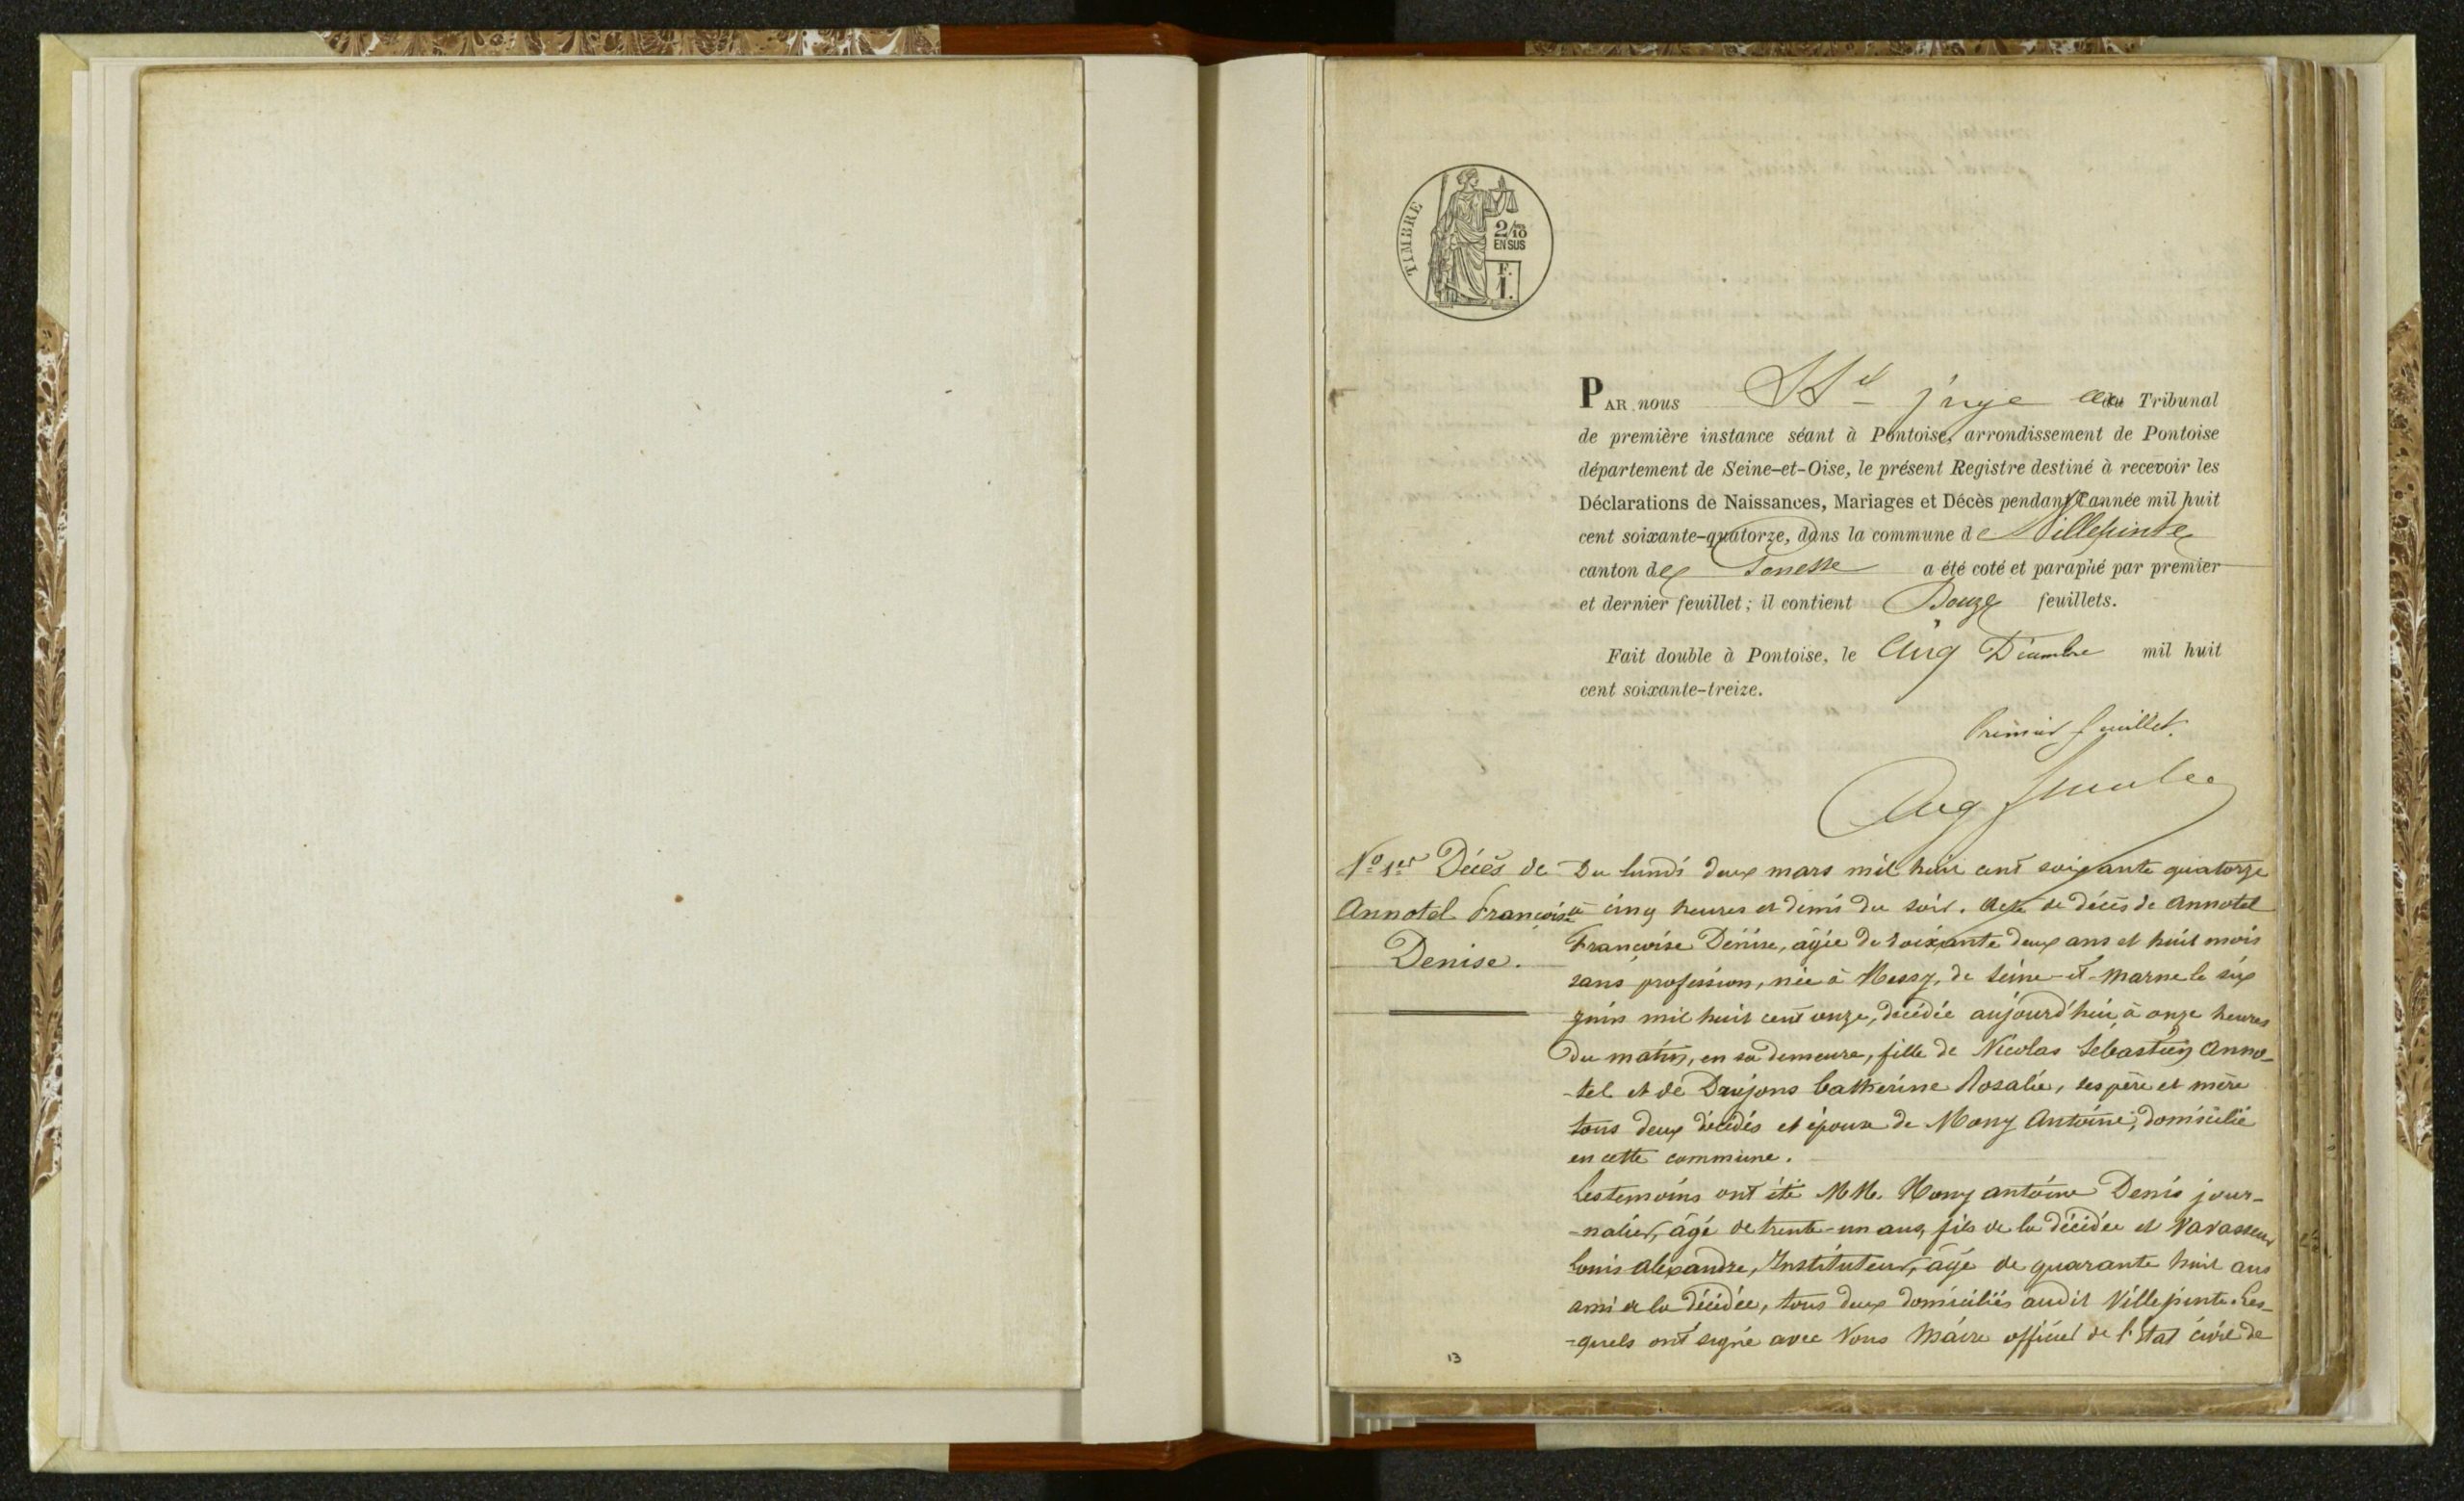 TIMBRE
2/10
EN SUS
F.
1.
PAR nous juge au Tribunal
de première instance séant à Pontoise, arrondissement de Pontoise
département de Seine-et-Oise, le présent Registre destiné à recevoir les
Déclarations de Naissances, Mariages et Décès pendant l'année mil huit
cent soixante-quatorze, dans la commune de Villepinte
canton de Gonesse a été coté et paraphé par premier
et dernier feuillet ; il contient Douze feuillets.
Fait double à Pontoise, le Cinq Décembre mil huit
cent soixante-treize.
Premier feuillet.
N° 1er Décès de
Annotel Françoise
Denise.
Du lundi deux mars mil huit cent soixante quatorze
à cinq heures et demi du soir. Acte de décès de Annotel
Françoise Denise, âgée de soixante deux ans et huit mois
sans profession, née à Messy, de Seine-et-Marne le six
juin mil huit cent onze, décédée aujourd'hui à onze heures
du matin, en sa demeure, fille de Nicolas Sébastien Anno-
-tel et de Dujons Catherine Rosalie, ses père et mère
tous deux décédés et épouse de Mony Antoine, domicilié
en cette commune.
Les temoins ont été MM. Mony antoine Denis jour-
-nalier, âgé de trente-un ans, fils de la décédée et Vavasseur
Louis Alexandre, Instituteur, âgé de quarante huit ans
ami de la décédée, tous deux domiciliés audit Villepinte. Les-
-quels ont signé avec Nous Maire officier de l'Etat civil de
13